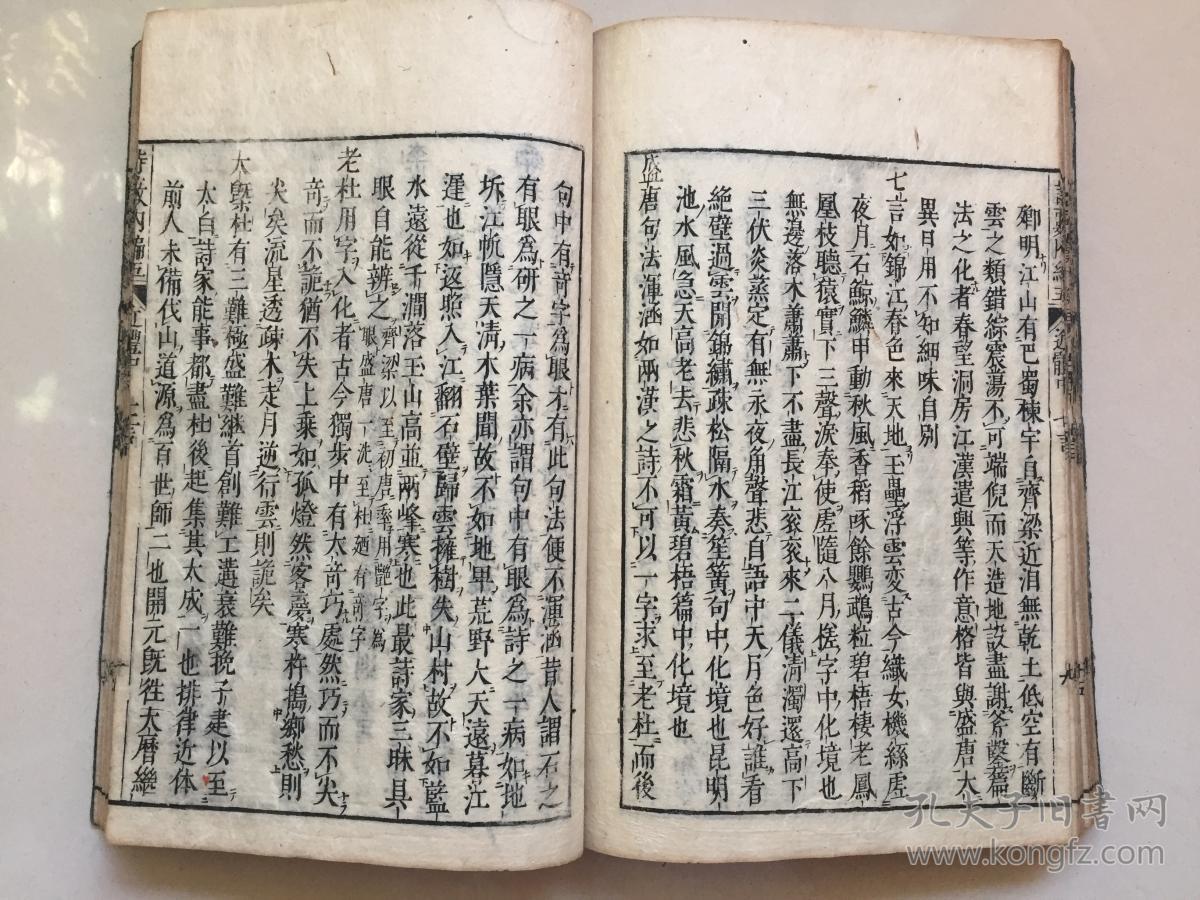 鄉明江山有巴蜀棟宇自齊梁近泪無乾土低空有斷
雲之類錯綜震蕩不可端倪而天造地設盡謝斧鑿篇
法之化者春望洞房江漢遣興等作意格皆與盛唐大
異日用不知細味自別
七言如錦江春色來天地玉壘浮雲変古今織女機絲虛
夜月石鯨鱗甲動秋風香稻啄餘鸚鵡粒碧梧棲老鳳
凰枝聽猿實下三聲淚奉使虛隨八月槎字中化境也
無邊落木蕭蕭下不盡長江衮衮來二儀清濁還高下
三伏炎蒸定有無永夜角聲悲自語中天月色好誰看
絕壁過雲開錦繡疎松隔水奏笙簧句中化境也昆明
池水風急天高老去悲秋霜黃碧梧篇中化境也
盛唐句法渾涵如兩漢之詩不可以一字求至老杜而後
句中有竒字爲眼才有此句法便不渾涵昔人謂石之
有眼爲研之一病余亦謂句中有眼爲詩之一病如地
坼江帆隱天淸木葉聞故不如地卑荒野大天遠暮江
遲也如返照入江翻石壁歸雲擁樹失山村故不如藍
水遠從千澗落玉山高並兩峰寒也此最詩家三昧具
眼自能辨之齊梁以至初唐率用艷字爲
眼盛唐一洗至杜廼有竒字
老杜用字入化者古今獨步中有太竒巧處然巧而不尖
竒而不詭猶不失上乗如孤燈然客夢寒杵搗鄉愁則
尖矣流星透疎木走月逆行雲則詭矣
大槩杜有三難極盛難継首創難工遘衰難挽子建以至
太白詩家能事都盡杜後起集其大成一也排律近体
前人未備伐山道源爲百世師二也開元旣徃大曆繼
詩藪內編五
近體中
七言
孔夫子旧書网
www.kongfz.com